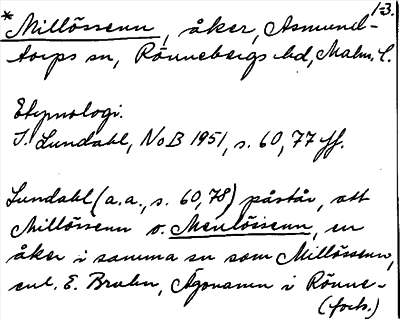 1-3.
* Millössenn, åker, Asmund-
torps sn, Rönnebergs hd, Malm. l.
Etymologi.
I. Lundahl, NoB 1951, s. 60, 77 ff.
Lundahl (a.a., s. 60, 78) påstår, att
Millössenn o. Meulössenn, en
åker i samma sn som Millössenn,
enl. E. Bruhn, Ägonamn i Rönne-
(forts.)